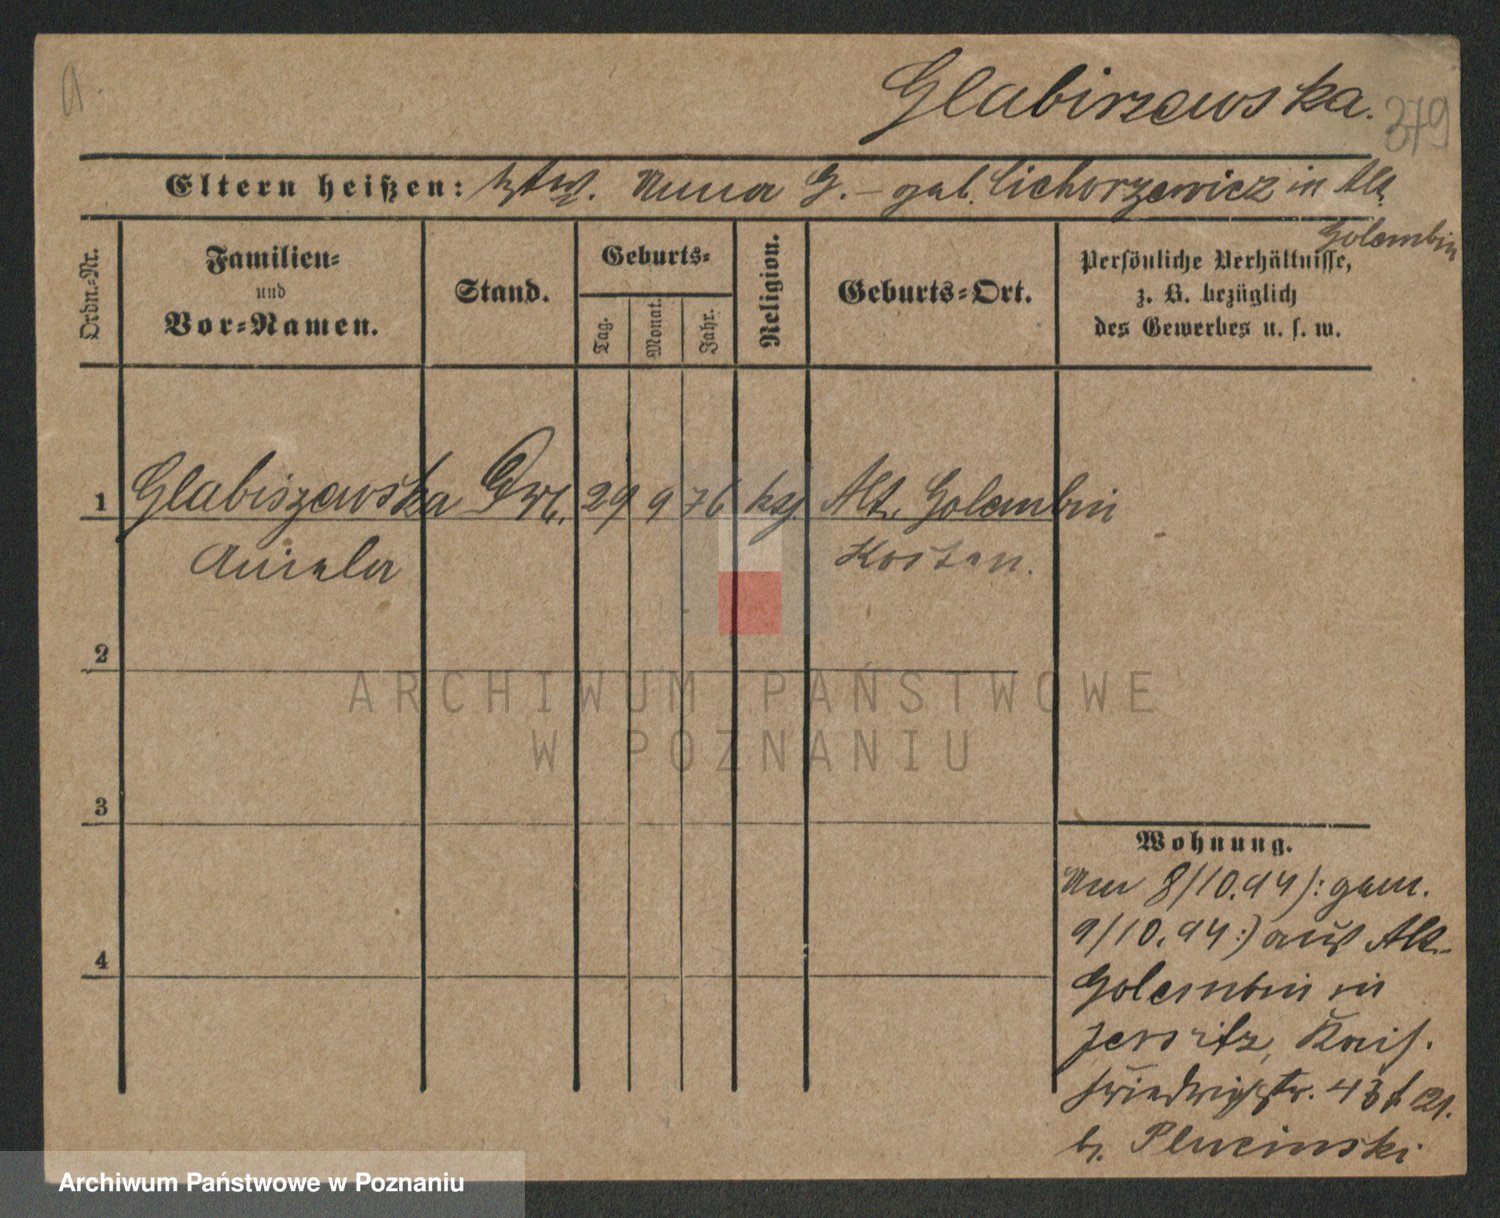 Glabiszewska.
379
Eltern heißen: Anna G. – geb. Cichorzewicz in Alt
Golembin
Ordn.-Nr.
Familien-
und
Vor-Namen.
Stand.
Geburts-
Tag.
Monat.
Jahr.
Religion.
Geburts-Ort.
Persönliche Verhältnisse,
z. B. bezüglich
des Gewerbes u. s. w.
1 Glabiszewska 29 9 76 Alt. Golembin
Aniela Kosten.
2
3
4
ARCHIWUM PAŃSTWOWE
W POZNANIU
Wohnung.
Am 8/10.94 /: gem.
9/10.94 :) aus Alt-
Golembin in
Jersitz, Kais.
Friedrichstr. 43
b. Plucinski
Archiwum Państwowe w Poznaniu